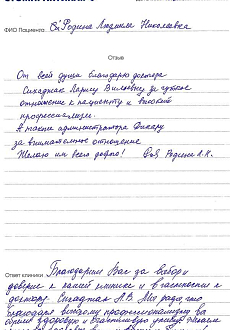 ФИО Пациента Родина Людмила Николаевна
Отзыв
От всей души благодарю доктора
Сихаджак Ларису Виловну за чуткое
отношение к пациенту и высокий
профессионализм.
А также администратора
за внимательное отношение
Желаю им всего доброго!
Ответ клиники Благодарим Вас за выбор и
доверие к нашей клинике и в частности к
доктору Сихаджак Л.В. Мы рады, что
благодаря высокому профессионализму вы
обрели здоровую и счастливую улыбку. Желаем